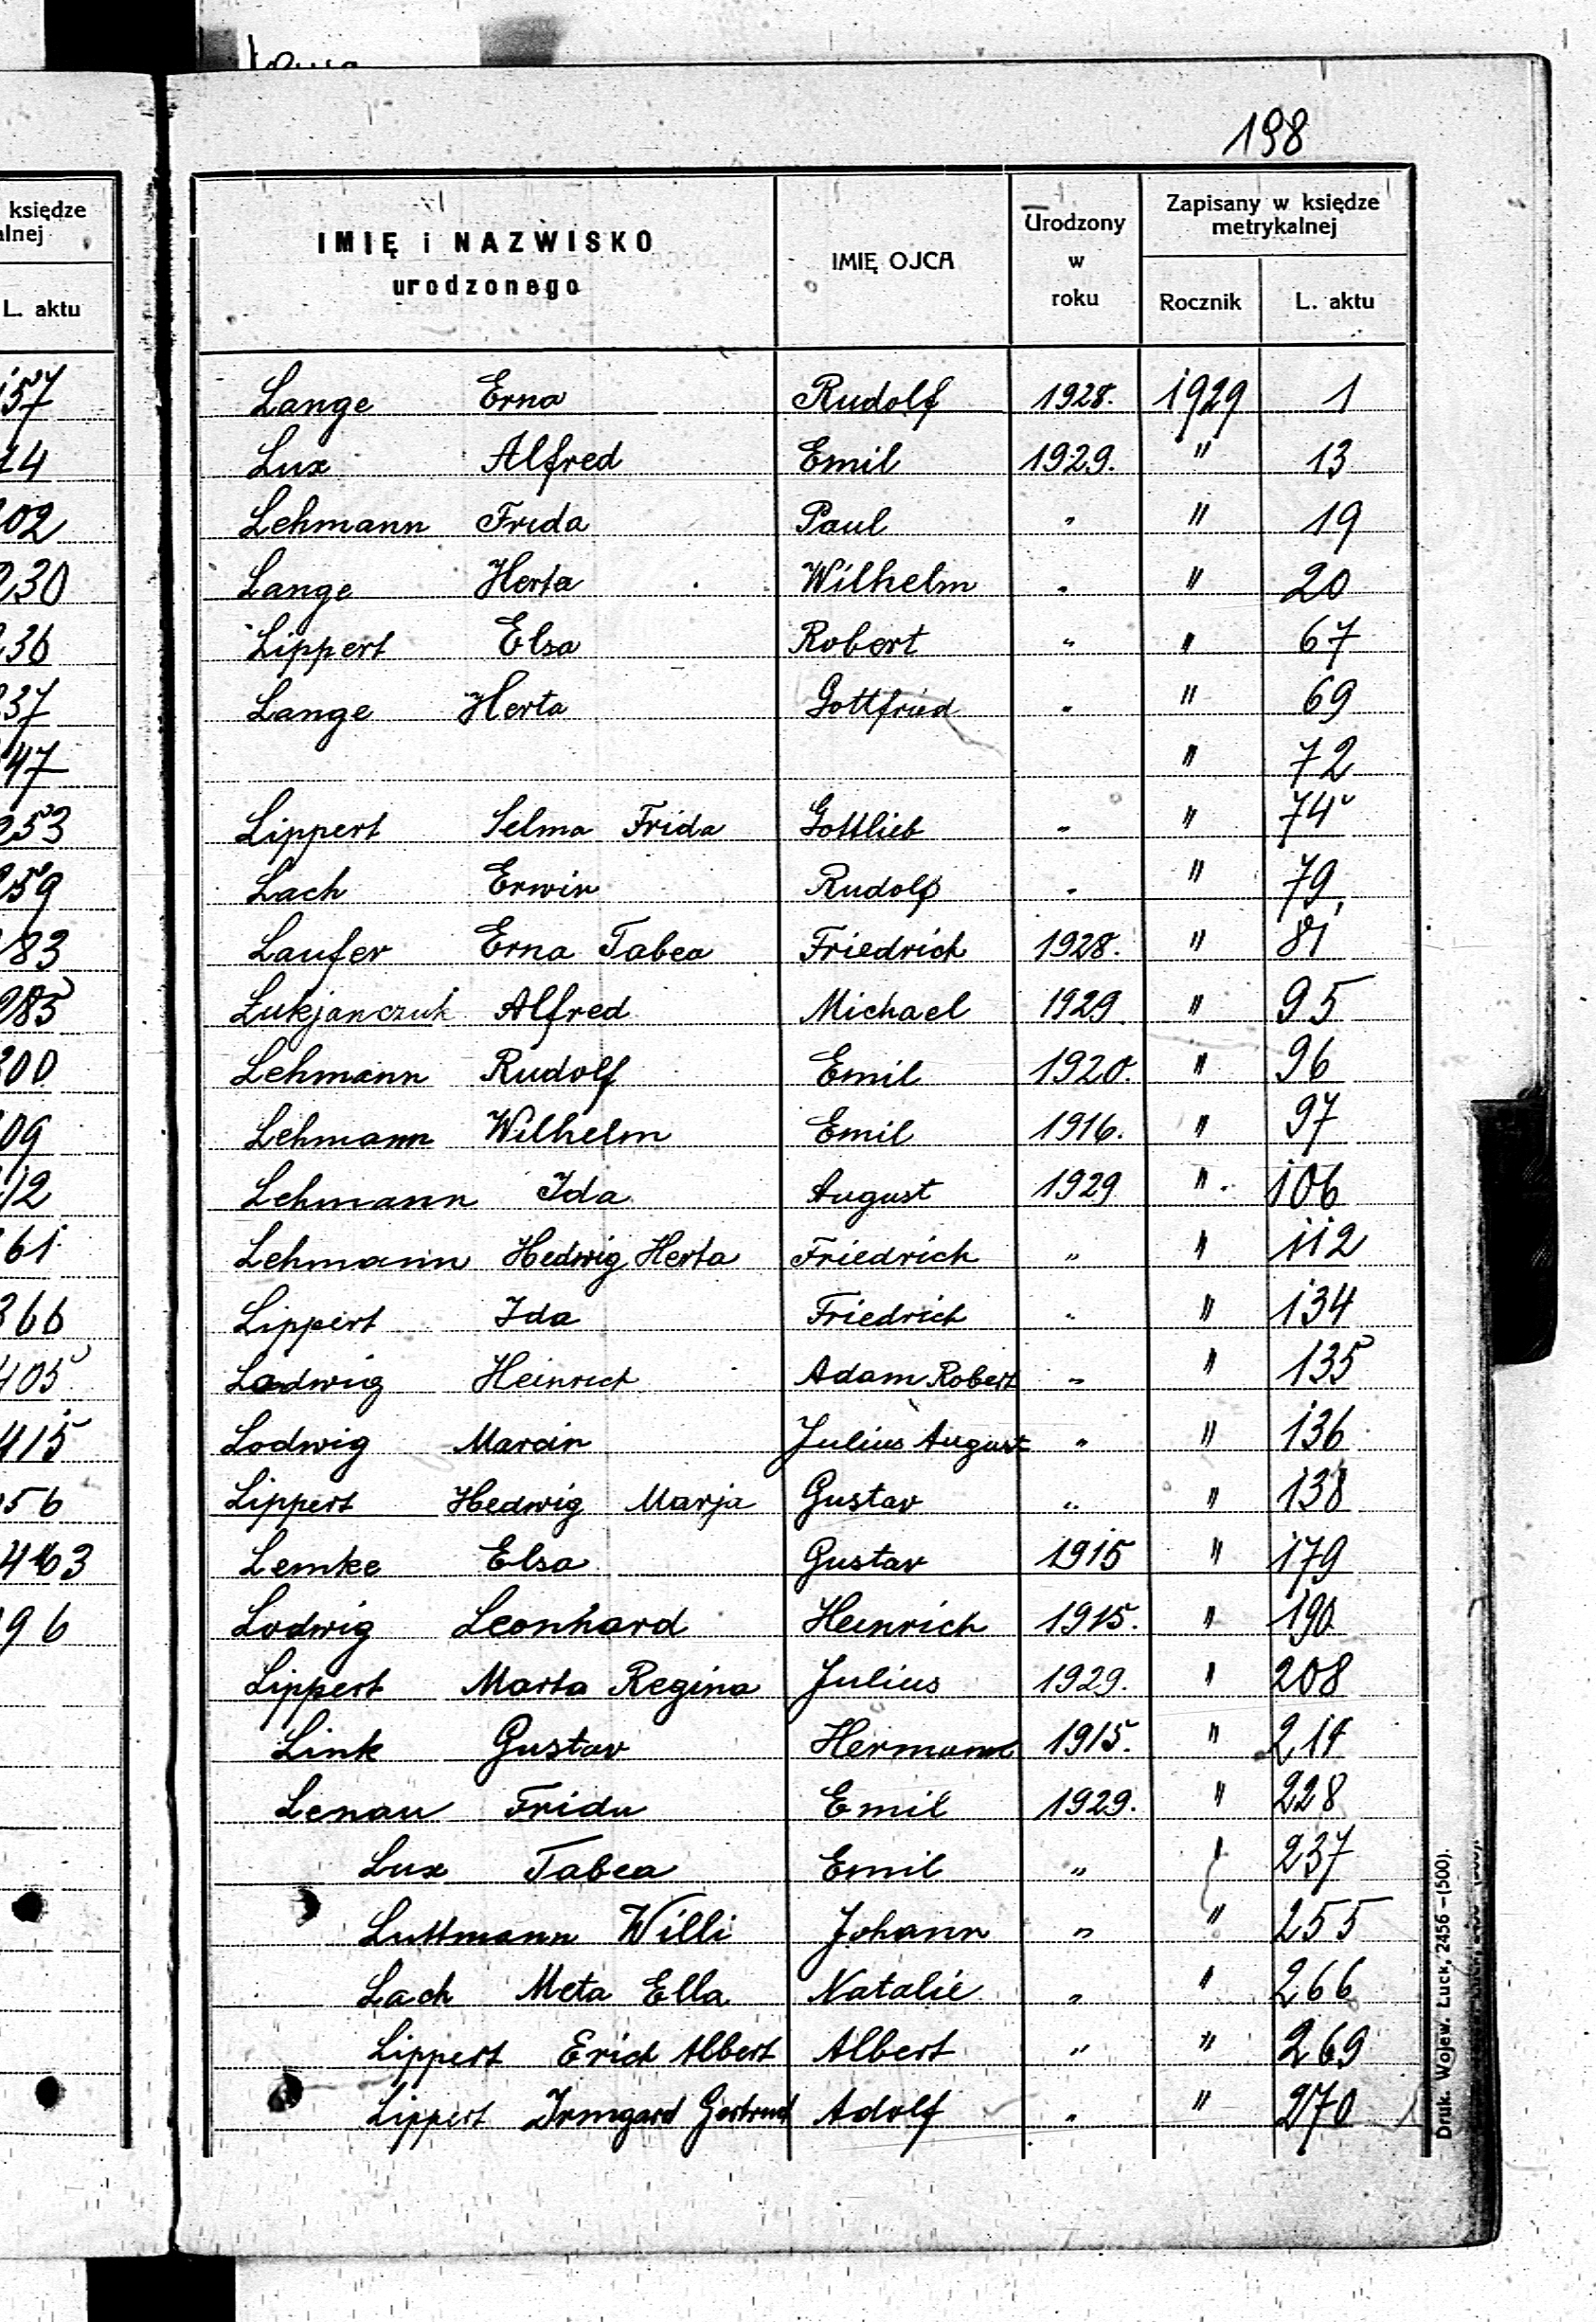 198
księdze
alnej
L. aktu
157
14
02
230
236
237
47
253
259
283
285
300
09
12
361
366
405
415
56
463
96
IMIĘ i NAZWISKO
urodzonego
IMIĘ OJCA
Urodzony
w
roku
Zapisany w księdze
metrykalnej
Rocznik L. aktu
Lange Erna Rudolf 1928. 1929 1
Lux Alfred Emil 1929. " 13
Lehmann Frida Paul " " 19
Lange Herta Wilhelm " " 20
Lippert Elsa Robert " " 67
Lange Herta Gottfried " " 69
" 72
Lippert Selma Frida Gottlieb " " 74
Lach Erwin Rudolf " " 79
Laufer Erna Tabea Friedrich 1928. " 81
Łukjanczuk Alfred Michael 1929 " 95
Lehmann Rudolf Emil 1920. " 96
Lehmann Wilhelm Emil 1916. " 97
Lehmann Ida August 1929 " 106
Lehmann Hedwig Herta Friedrich " " 112
Lippert Ida Friedrich " " 134
Ladwig Heinrich Adam Robert " " 135
Lodwig Marcin Julius August " " 136
Lippert Hedwig Marja Gustav " " 138
Lemke Elsa Gustav 1915 " 179
Lodwig Leonhard Heinrich 1915. " 190
Lippert Marta Regina Julius 1929. " 208
Link Gustav Hermann 1915. "
Lenau Frida Emil 1929. " 228
Lux Tabea Emil " " 237
Luttmann Willi Johann " " 255
Lach Meta Ella Natalie " " 266
Lippert Erich Albert Albert " " 269
Lippert Irmgard Gertrud Adolf " " 270
Druk. Wojew. Łuck, 2456 –(500).